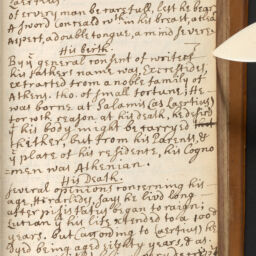 of every man be carefull, lest he bear
A sword Contrald wth in his breast, a clear
Aspect, a double tongue, a mind severe
His birth.
By ye general consent of writers
his fathers name was Execestides,
extracted from a noble family of
Athens: tho. of small fortune; He
was borne at Salamis (as Laertius)
for wch reason at his death, he desired
yt his body might be carryed
thither, but from his parents &
ye place of his residents, his Cogno
-men was Athenian.
His Death.
Several opinions concerning his
age, Heraclides, say he lived long
after pisistratus began to raign;
Lucian yt his life extended to a 100d
years. but (according to Laertius) he
dyed being aged eighty years, & as